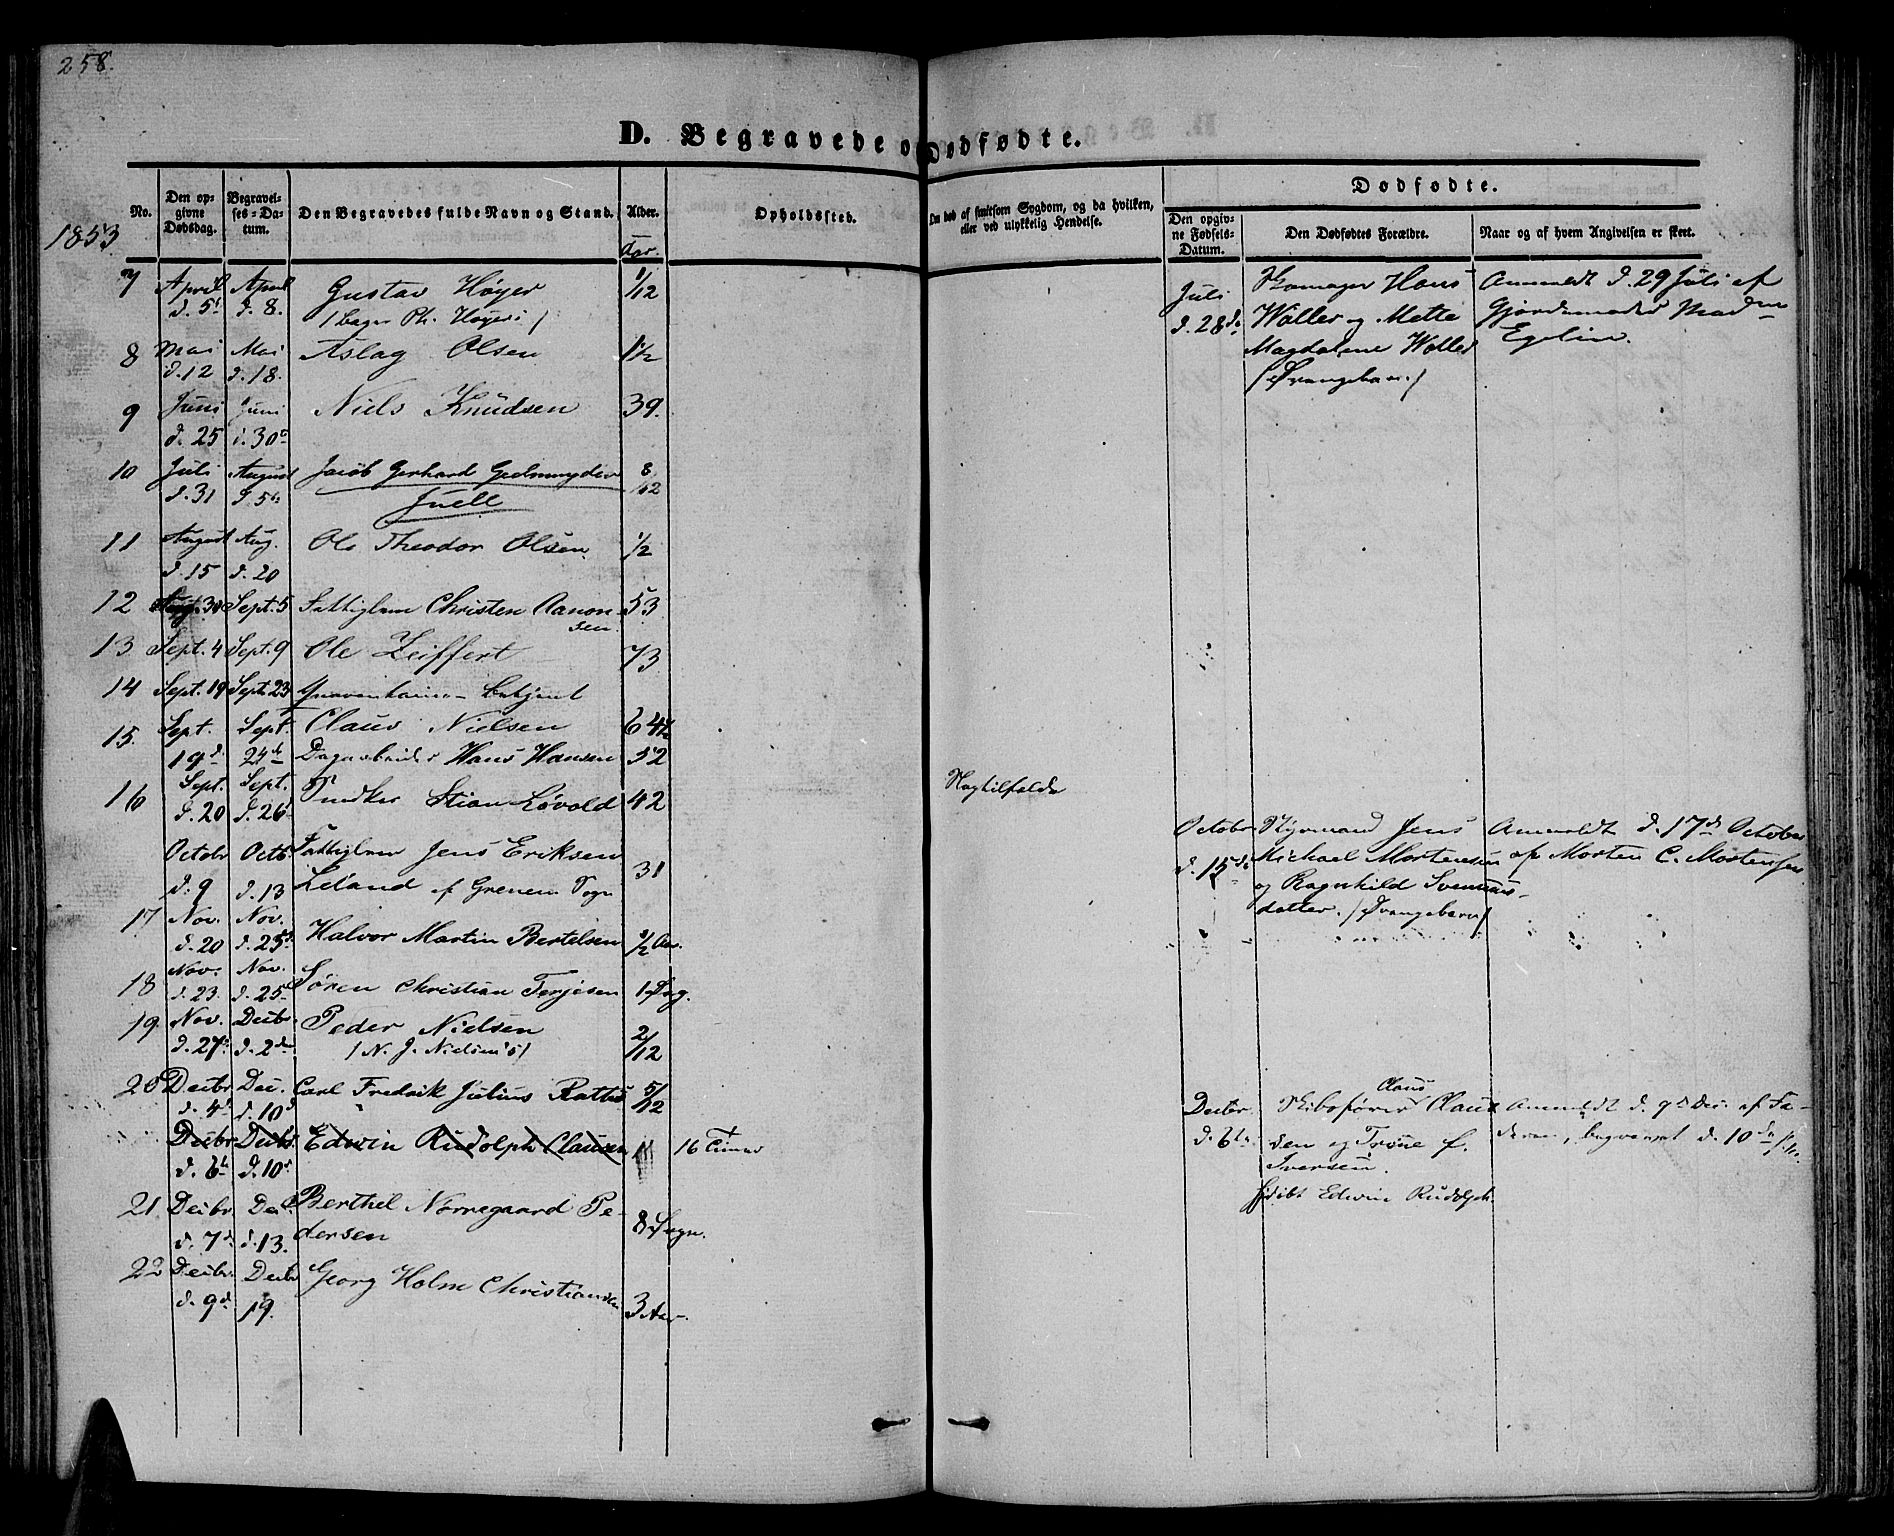 258.
D. Begravede o
Dødfødte.
No.
Den opgivne Dødsdag.
Begravelses-Datum.
Den Begravedes fulde Navn og Stand.
Alder.
Opholdssted.
Om død af smitsom Sygdom, og da hvilken, eller ved ulykkelig Hendelse.
Dødfødte.
Den opgivne Fødsels-Datum.
Den Dødfødtes Forældre.
Naar og af hvem Angivelsen er skeet.
1853
Aar.
7 April April Gustav Høyer 1/12
d. 5t d. 8. / Høyers /
8 Mai Mai Aslag Olsen 1 1/2
d. 12 d. 18.
9 Juni Juni Niels Knudsen 39.
d. 25 d. 30t
10 Juli August Jacob Gerhard Gedmuyden 8/12
d. 31 d. 5te Juell
11 August Aug. Ole Theodor Olsen 1/2
d. 15 d. 20
12 Sept. 5 Fattiglem Christen Aanon- 53
sen.
13 Sept. 4 Sept. 9 Ole Zeiffert 73
14 Sept. 19 Sept. 23 betjent
Claus Nielsen 64 1/2
15. Sept. Sept.
19d 24de Dagarbeider Hans Hansen 52
16 Sept. Sept. Snedker Stian Løvold 42
d. 20 d. 26
Octobr Octb. Fattiglem Jens Eriksen 31
d. 9 d. 13 Leland af Grenem Sogn
17 Nov. Nov. Halvor Martin Bertelsen 1/2 Aar.
d. 20 d. 25
18 Nov. Nov. Søren Christian Terjesen 1 Dag.
d. 23. d. 25
19 Nov. Decbr. Peder Nielsen 2/12
d. 27 d. 2den / N. J. Nielsen's /
20 Decbr Dec. Carl Fredrik Julius 5/12
d. 4 d. 10
Decbr Decbr. Edwin Rudolph Clausen 16 Timer
d. 6te d. 10
21 Decbr Dec Berthel Nørregaard Pe- 8 Dage.
d. 7d d. 13. dersen
22 Decbr. Decbr Georg Holm Christiansen 3 Aar.
d. 9d 19.
Juli
d. 28de
Skomager Hans
Woller og Mette
Magdalene Woller
/ Drengebarn. /
Anmeldt d. 29 Juli af
Gjordemoder Madme
Egelin.
Octobr
d. 15de
Styrmand Jens
Michael Mortensen
og Ragnhild Svennings-
datter. / Drengebarn /
Anmeldt d. 17d October
af Morten C. Mortensen
Decbr.
d. 6te
Claus
Skibsfører Claus
den og Trone f.
Iversen.
døbt Edwin Rudolph.
Anmeldt d. 9d Dec. af Fa-
deren, begravet d. 10de